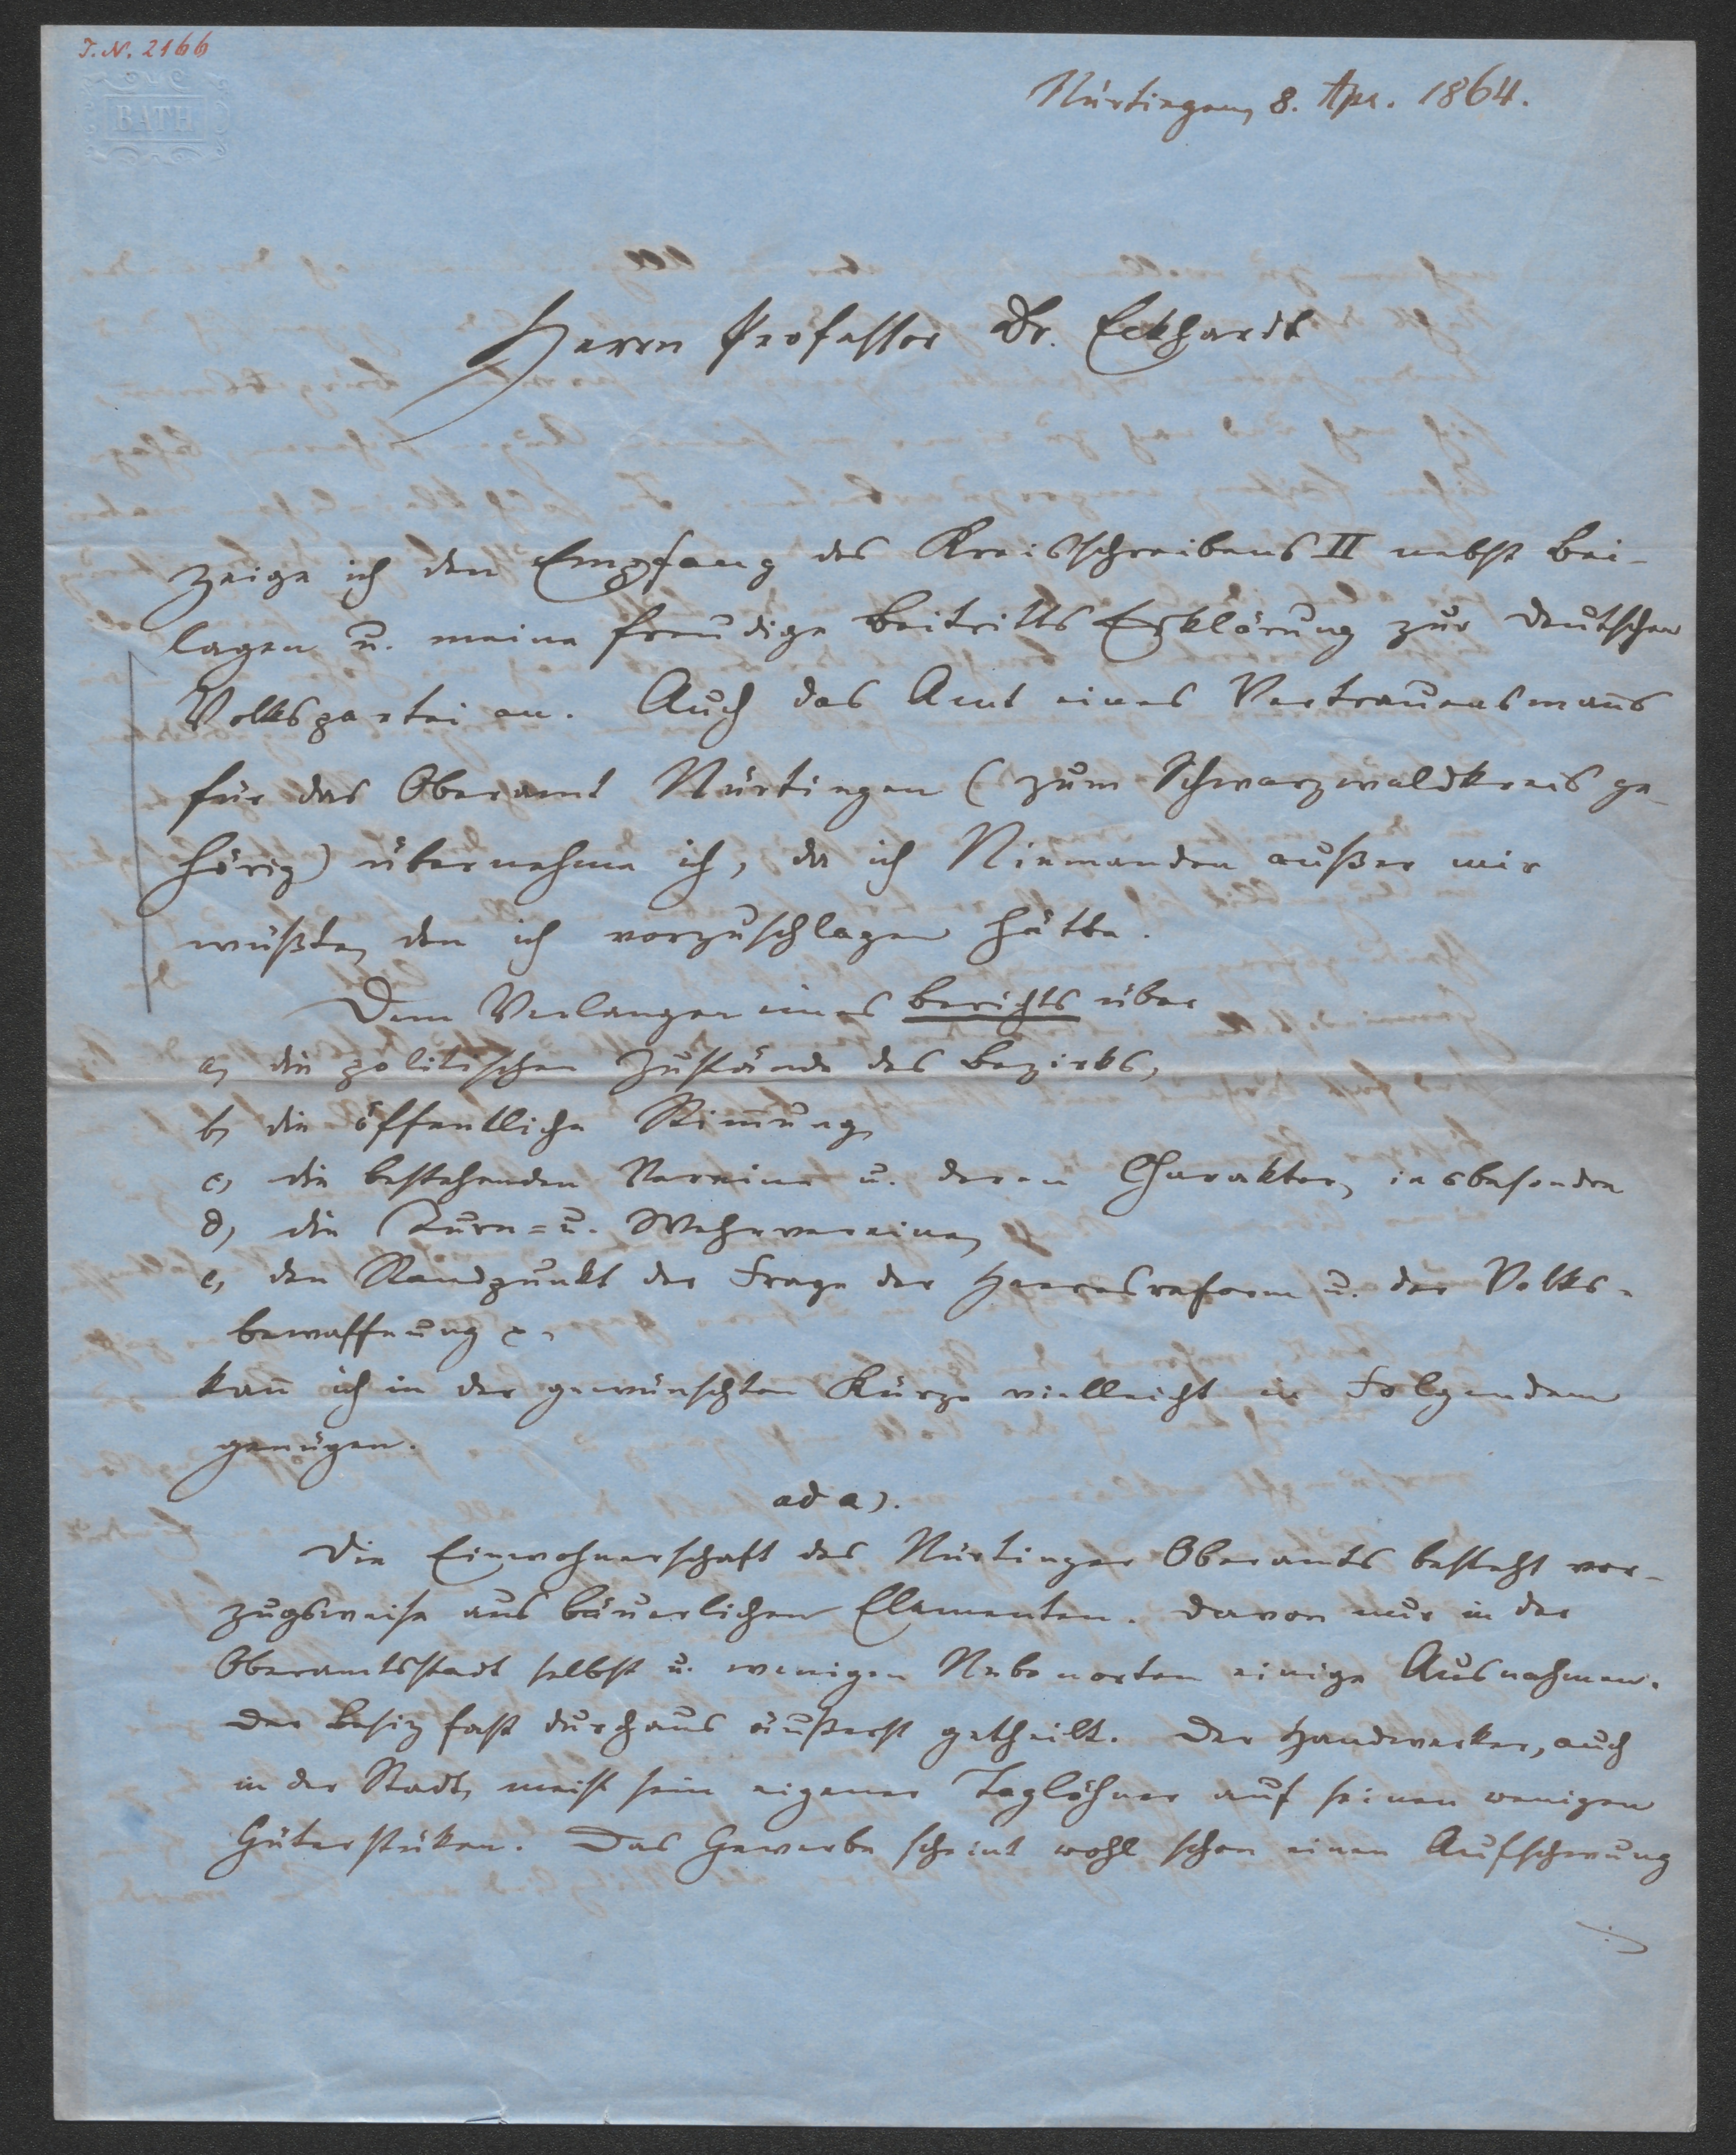 J. N. 2166
BATH
Nürtingen, 8. Apr. 1864.
Herrn Professor Dr. Eckhardt
zeige ich den Empfang des Kreisschreibens II nebst Bei-
lagen u. meine freudige Beitritts Erklärung zur deutschen
Volkspartei an. Auch das Amt eines Vertrauensmanns
für das Oberamt Nürtingen (zum Schwarzwaldkreis ge-
hörig) übernehme ich, da ich Niemanden außer mir
wüßte, den ich vorzuschlagen hätte.
Dem Verlangen eines Berichts über
a, die politischen Zustände des Bezirks,
b, die öffentliche Stim̄ung,
c, die bestehenden Vereine u. deren Charakter, insbesondere
d, die Turn= u. Wehrvereine,
e, den Standpunkt der Frage der Heeresreform u. der Volks-
bewaffnung
kan̄ ich in der gewünschten Kürze vielleicht in Folgendem
genügen.
ad a).
Die Einwohnerschaft des Nürtinger Oberamts besteht vor-
zugsweise aus bäuerlichen Elementen. Davon nur in der
Oberamtsstadt selbst u. wenigen Nebenorten einige Ausnahmen.
Der Besiz fast durchaus äußerst getheilt. Der Handwerker, auch
in der Stadt, meist sein eigener Taglöhner auf seinen wenigen
Güterstüken. Das Gewerbe scheint wohl schon einen Aufschwung